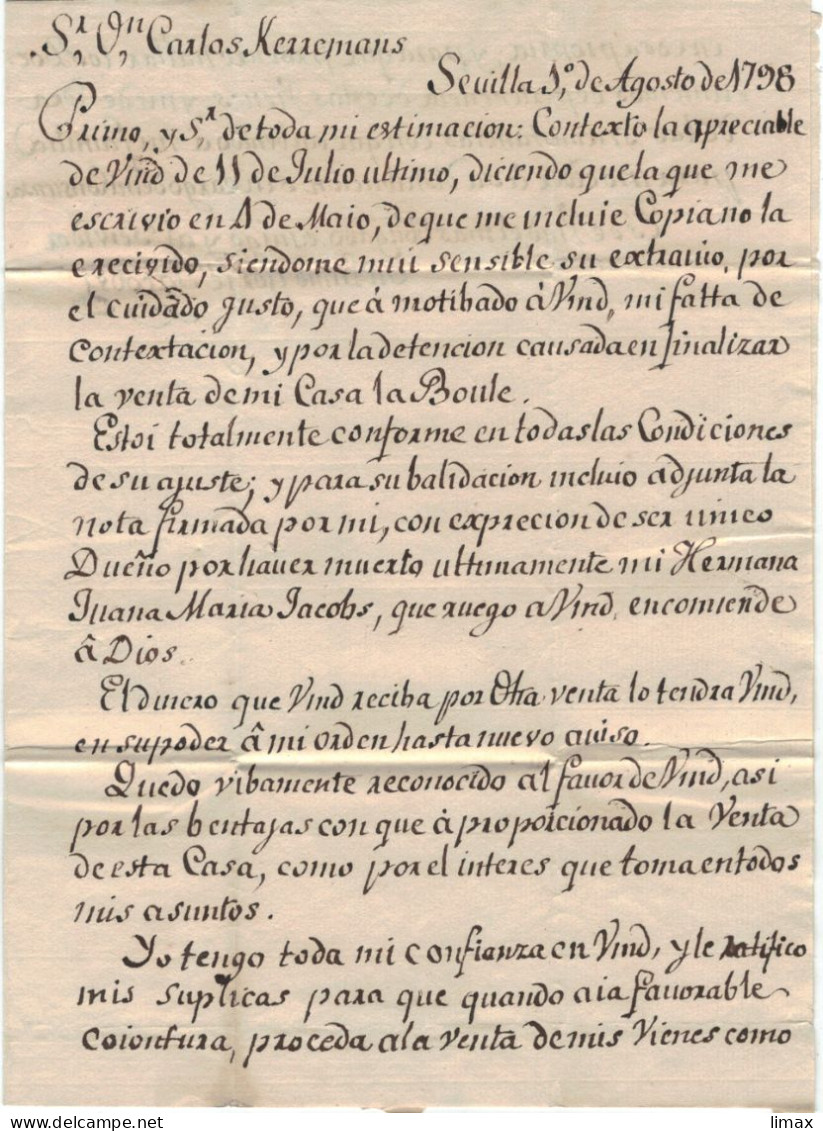 Sr. Dn. Carlos Kerremans
Sevilla 1º de Agosto de 1798
Primo, y Sr. de toda mi estimacion: Contexto la apreciable
de Vmd de 11 de Julio ultimo, diciendo que la que me
escrivio en 4 de Maio, de que me incluie Copia no la
e recivido, siendome mui sensible su extravio, por
el cuidado justo, que á motibado á Vmd, mi falta de
Contextacion, y por la detencion causada en finalizar
la venta de mi Casa la Boule.
Estoi totalmente conforme en todas las Condiciones
de su ajuste; y para su balidacion incluio adjunta la
nota firmada por mi, con exprecion de ser unico
Dueño por haver muerto ultimamente mi Hermana
Juana Maria Jacobs, que ruego a Vmd, encomiende
â Dios.
El dinero que Vmd reciba por dha venta lo tendra Vmd,
en su poder â mi orden hasta nuevo aviso.
Quedo vibamente reconocido al favor de Vmd, asi
por las bentajas con que á proporcionado la Venta
de esta Casa, como por el interes que toma en todos
mis asuntos.
Yo tengo toda mi confianza en Vmd, y le ratifico
mis suplicas para que quando aia favorable
coiontura, proceda a la venta de mis Vienes como
limax